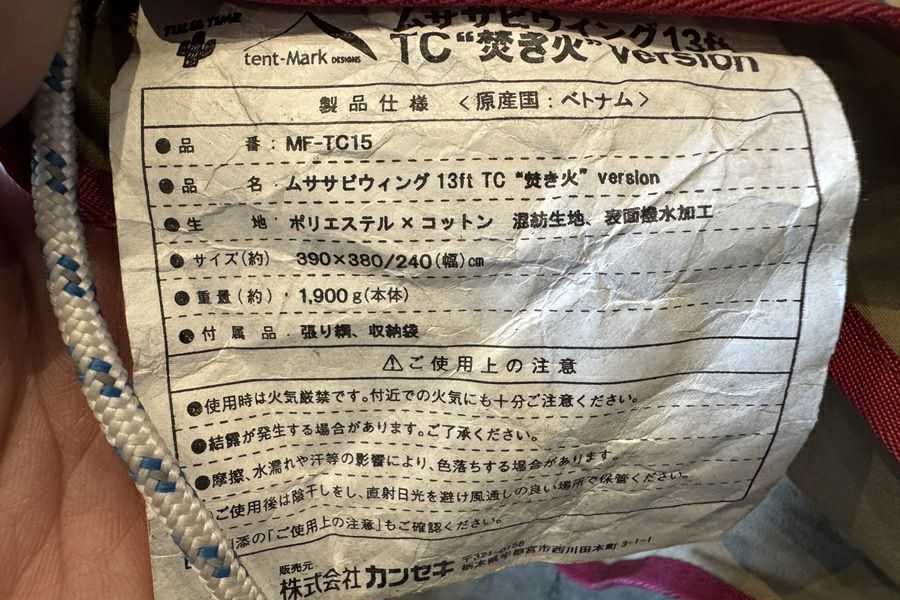 TULSA TIME
tent-Mark DESIGNS
ムササビウィング13ft
TC“焚き火”version
製品仕様 〈原産国：ベトナム〉
●品 番：MF-TC15
●品 名・ムササビウィング 13ft TC “焚き火” version
●生 地・ポリエステル×コットン 混紡生地、表面撥水加工
●サイズ(約) 390×380/240(幅)cm
●重量(約)・1,900g(本体)
●付属品・張り綱、収納袋
⚠ご使用上の注意
●使用時は火気厳禁です。付近での火気にも十分ご注意ください。
●結露が発生する場合があります。ご了承ください。
●摩擦、水濡れや汗等の影響により、色落ちする場合があります。
ご使用後は陰干しをし、直射日光を避け風通しの良い場所で保管ください。
添の「ご使用上の注意」もご確認ください。
販売元
株式会社カンセキ
〒321-0158
栃木県宇都宮市西川田本町3-1-1